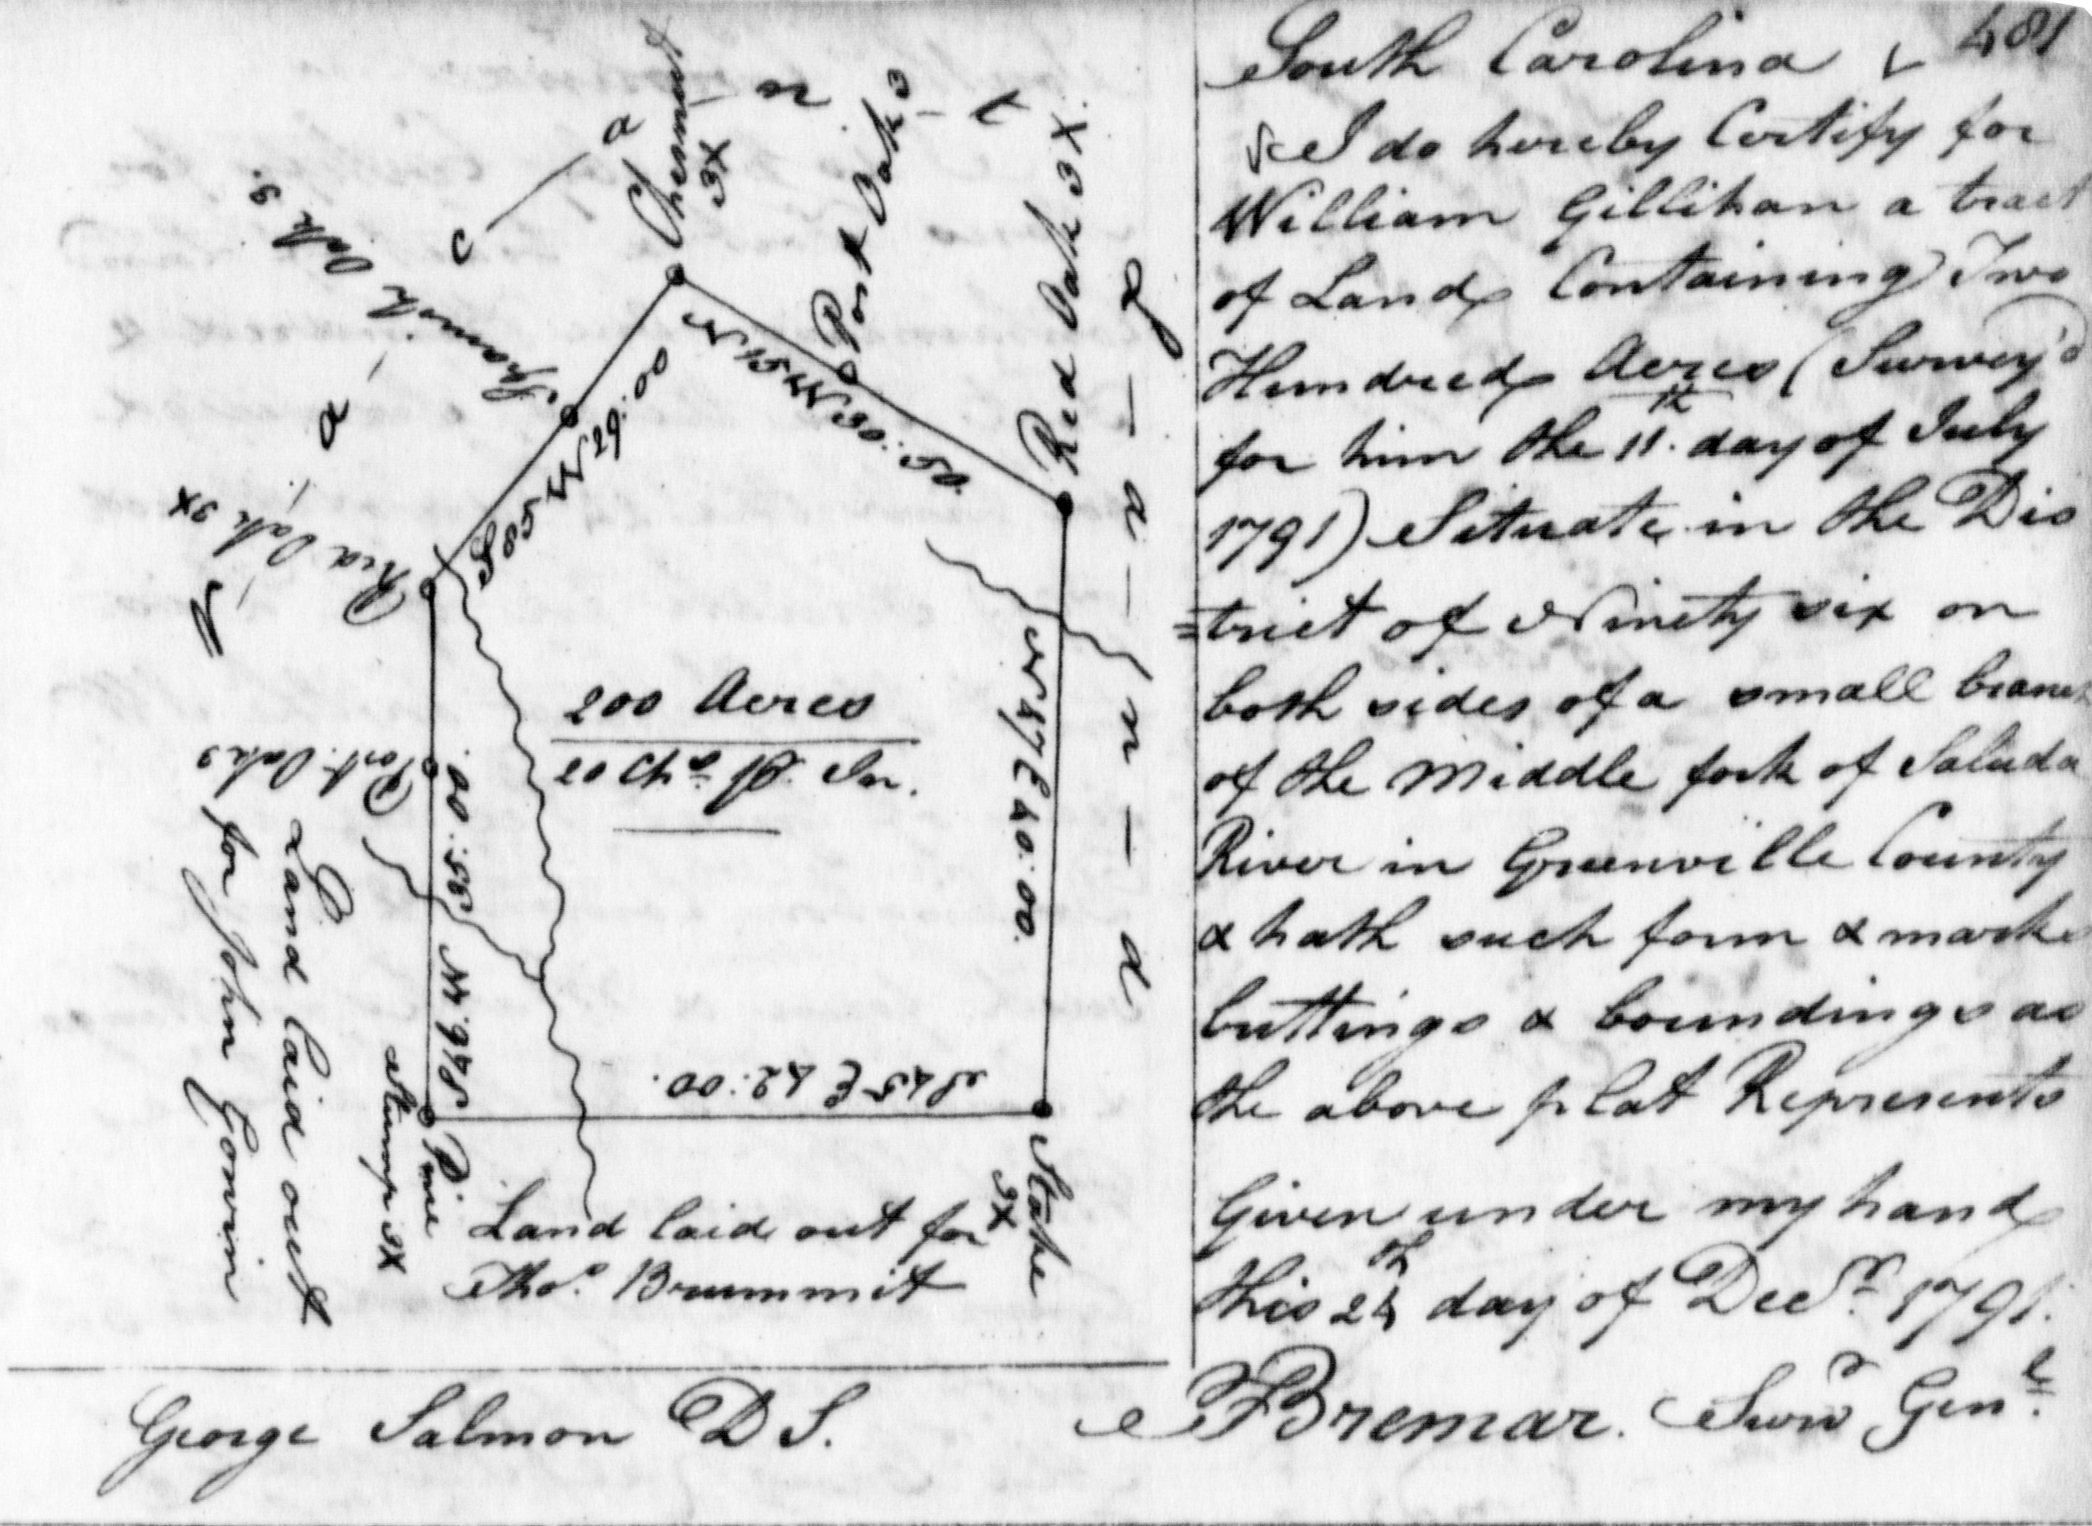 481
South Carolina
I do hereby Certify for
William Gillihan a tract
of Land Containing Two
Hundred Acres (Survey'd
for him the 11th day of July
1791) Situate in the Dis
=trict of Ninety six on
both sides of a small branch
of the Middle fork of Saluda
River in Greenville County
& hath such form & marks
buttings & boundings as
the above plat Represents
Given under my hand
this 24th day of Decr. 1791.
Bremar. Survr Genl.
V a c a n t
L a n d
Chesnut 3X
Post Oak 3
Red Oak 3X.
Spanish Oak 3.
Red Oak 3X
Post Oak 3
29:00
N 47 E 40:00.
S 45 E 42:00.
200 Acres
20 Chs. pr. In.
Land laid out
for John Gowin
Pine
Stump 3X
Stake
3X
Land laid out for
Thos. Brummit
George Salmon D S.